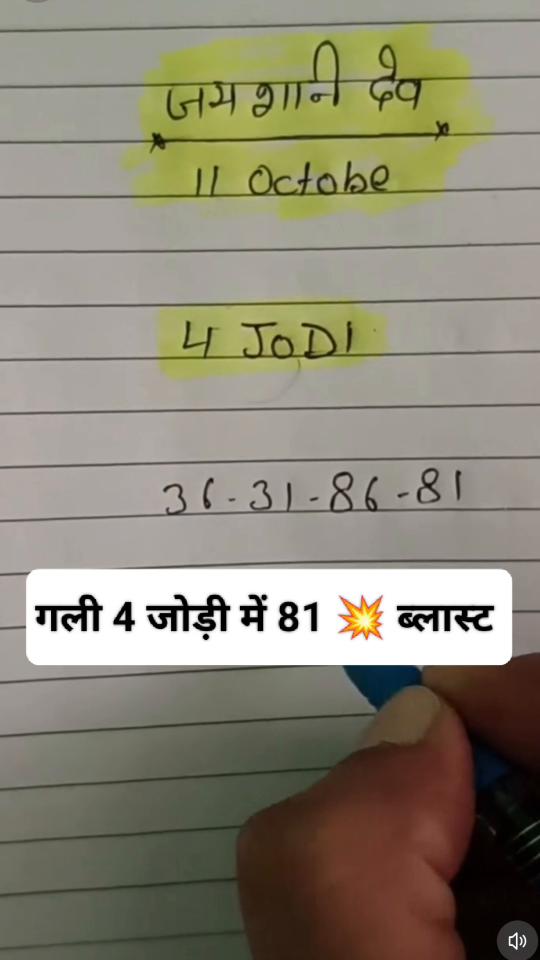 जय शानी देव
11 Octobe
4 JODI
36-31-86-81
गली 4 जोड़ी में 81 💥 ब्लास्ट